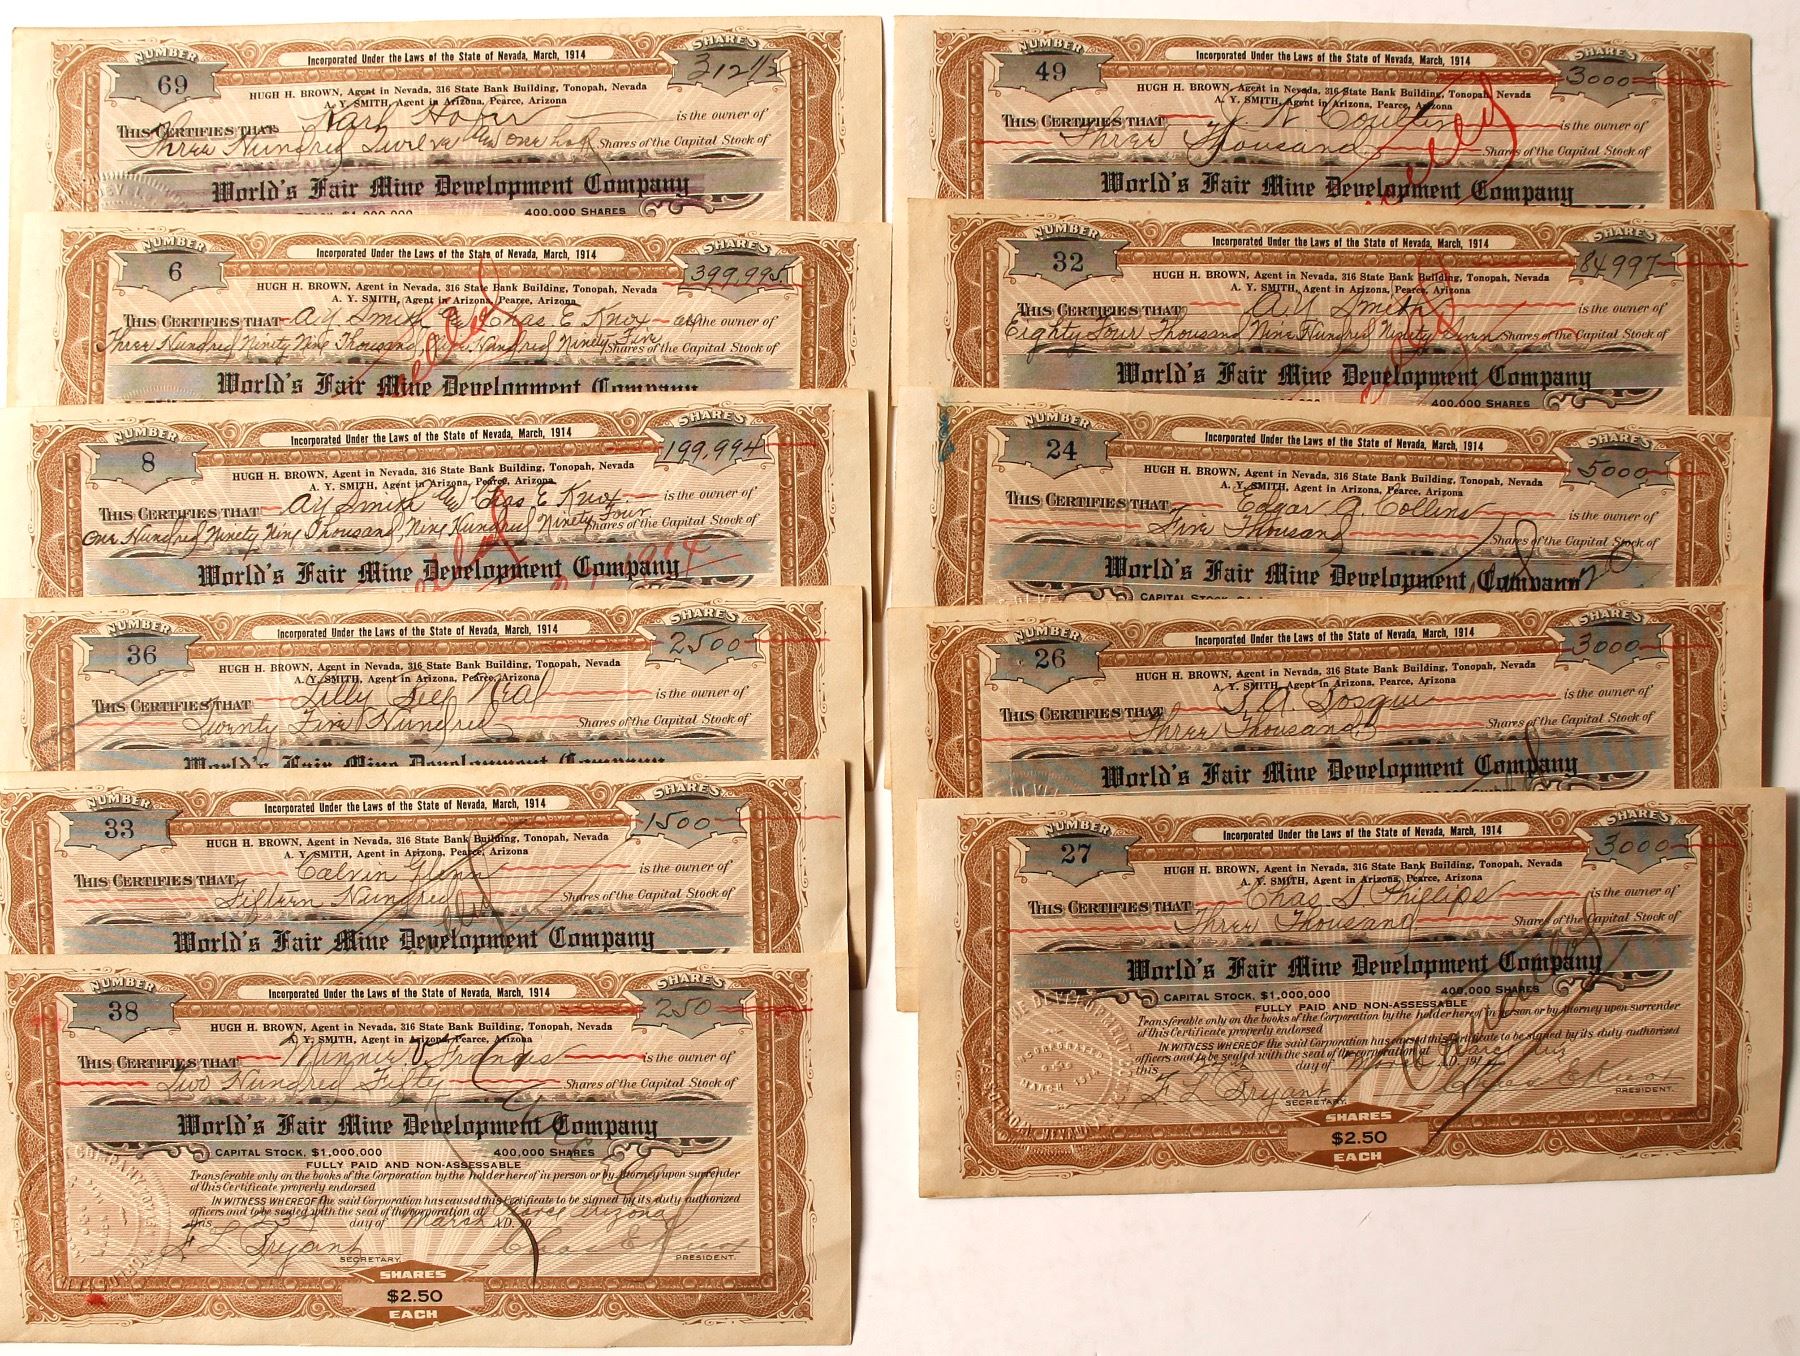 NUMBER
69
Incorporated Under the Laws of the State of Nevada, March, 1914
SHARES
312 1/2
HUGH H. BROWN, Agent in Nevada, 316 State Bank Building, Tonopah, Nevada
A. Y. SMITH, Agent in Arizona, Pearce, Arizona
THIS CERTIFIES THAT Karl is the owner of
Three Hundred Twelve and one half Shares of the Capital Stock of
World's Fair Mine Development Company
$1,000,000 400,000 SHARES
NUMBER
6
Incorporated Under the Laws of the State of Nevada, March, 1914
SHARES
399,995
HUGH H. BROWN, Agent in Nevada, 316 State Bank Building, Tonopah, Nevada
A. Y. SMITH, Agent in Arizona, Pearce, Arizona
THIS CERTIFIES THAT A Y Smith and Chas E Knox the owner of
Three Hundred Ninety Nine Thousand, Nine Hundred Ninety Five Shares of the Capital Stock of
World's Fair Mine Development Company
NUMBER
8
Incorporated Under the Laws of the State of Nevada, March, 1914
SHARES
199,994
HUGH H. BROWN, Agent in Nevada, 316 State Bank Building, Tonopah, Nevada
A. Y. SMITH, Agent in Arizona, Pearce, Arizona
THIS CERTIFIES THAT A Y Smith and Chas E Knox is the owner of
One Hundred Ninety Nine Thousand, Nine Hundred Ninety Four Shares of the Capital Stock of
World's Fair Mine Development Company
NUMBER
36
Incorporated Under the Laws of the State of Nevada, March, 1914
SHARES
2500
HUGH H. BROWN, Agent in Nevada, 316 State Bank Building, Tonopah, Nevada
A. Y. SMITH, Agent in Arizona, Pearce, Arizona
THIS CERTIFIES THAT Lilly Neal is the owner of
Twenty Five Hundred Shares of the Capital Stock of
World's Fair Mine Development Company
NUMBER
33
Incorporated Under the Laws of the State of Nevada, March, 1914
SHARES
1500
HUGH H. BROWN, Agent in Nevada, 316 State Bank Building, Tonopah, Nevada
A. Y. SMITH, Agent in Arizona, Pearce, Arizona
THIS CERTIFIES THAT Calvin Glenn is the owner of
Fifteen Hundred Shares of the Capital Stock of
World's Fair Mine Development Company
NUMBER
38
Incorporated Under the Laws of the State of Nevada, March, 1914
SHARES
250
HUGH H. BROWN, Agent in Nevada, 316 State Bank Building, Tonopah, Nevada
A. Y. SMITH, Agent in Arizona, Pearce, Arizona
THIS CERTIFIES THAT Minnie V. Francis is the owner of
Two Hundred Fifty Shares of the Capital Stock of
World's Fair Mine Development Company
CAPITAL STOCK, $1,000,000 400,000 SHARES
FULLY PAID AND NON-ASSESSABLE
Transferable only on the books of the Corporation by the holder hereof in person or by Attorney upon surrender
of this Certificate properly endorsed
IN WITNESS WHEREOF the said Corporation has caused this Certificate to be signed by its duly authorized
officers and to be sealed with the seal of the corporation at Pearce Arizona
this day of March A.D.
F L Bryant SECRETARY. Chas E PRESIDENT.
SHARES
$2.50
EACH
NUMBER
49
Incorporated Under the Laws of the State of Nevada, March, 1914
SHARES
3000
HUGH H. BROWN, Agent in Nevada, 316 State Bank Building, Tonopah, Nevada
A. Y. SMITH, Agent in Arizona, Pearce, Arizona
THIS CERTIFIES THAT N is the owner of
Three Thousand Shares of the Capital Stock of
World's Fair Mine Development Company
NUMBER
32
Incorporated Under the Laws of the State of Nevada, March, 1914
SHARES
84997
HUGH H. BROWN, Agent in Nevada, 316 State Bank Building, Tonopah, Nevada
A. Y. SMITH, Agent in Arizona, Pearce, Arizona
THIS CERTIFIES THAT A Y Smith is the owner of
Eighty Four Thousand Nine Hundred Ninety Seven Shares of the Capital Stock of
World's Fair Mine Development Company
400,000 SHARES
NUMBER
24
Incorporated Under the Laws of the State of Nevada, March, 1914
SHARES
5000
HUGH H. BROWN, Agent in Nevada, 316 State Bank Building, Tonopah, Nevada
A. Y. SMITH, Agent in Arizona, Pearce, Arizona
THIS CERTIFIES THAT Edgar A. Collins is the owner of
Five Thousand Shares of the Capital Stock of
World's Fair Mine Development Company
NUMBER
26
Incorporated Under the Laws of the State of Nevada, March, 1914
SHARES
3000
HUGH H. BROWN, Agent in Nevada, 316 State Bank Building, Tonopah, Nevada
A. Y. SMITH, Agent in Arizona, Pearce, Arizona
THIS CERTIFIES THAT A. Bosqui is the owner of
Three Thousand Shares of the Capital Stock of
World's Fair Mine Development Company
NUMBER
27
Incorporated Under the Laws of the State of Nevada, March, 1914
SHARES
3000
HUGH H. BROWN, Agent in Nevada, 316 State Bank Building, Tonopah, Nevada
A. Y. SMITH, Agent in Arizona, Pearce, Arizona
THIS CERTIFIES THAT Chas S Phillips is the owner of
Three Thousand Shares of the Capital Stock of
World's Fair Mine Development Company
CAPITAL STOCK, $1,000,000 400,000 SHARES
FULLY PAID AND NON-ASSESSABLE
Transferable only on the books of the Corporation by the holder hereof in person or by Attorney upon surrender
of this Certificate properly endorsed
IN WITNESS WHEREOF the said Corporation has caused this Certificate to be signed by its duly authorized
officers and to be sealed with the seal of the corporation at Pearce Ariz
this 27th day of March A.D.
F L Bryant SECRETARY. PRESIDENT.
SHARES
$2.50
EACH